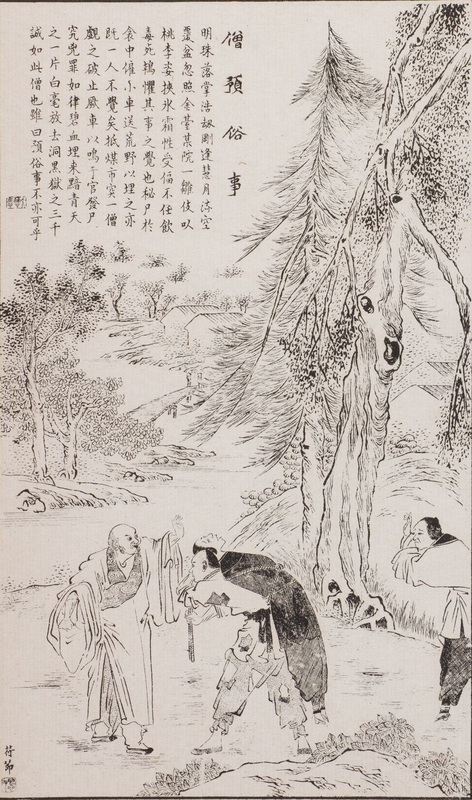 僧預俗事
明珠落掌浩劫剛逢慧月流空
覆盆忽照金臺某院一雛伎以
桃李姿挾氷霜性受偪不任飲
毒死鴇懼其事之覺也秘尸於
衾中催小車送荒野以埋之亦
既一人不覺矣抵煤市突一僧
覷之破止厥車以鳴于官發尸
究兇罪如律碧血埋來黯青天
之一片白毫放去洞黑獄之三千
誠如此僧也雖曰預俗事不亦可乎
符節